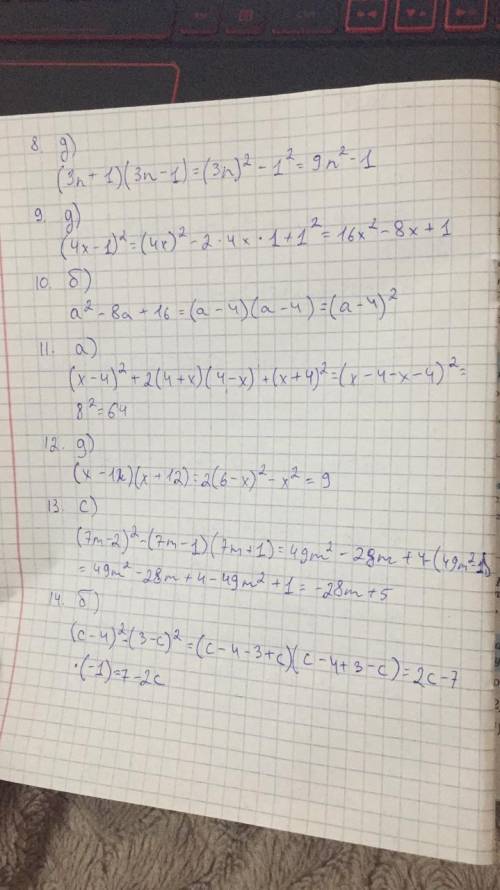 8. д)
(3n + 1)(3n - 1) = (3n)² - 1² = 9n² - 1
9. д)
(4x - 1)² = (4x)² - 2 · 4x · 1 + 1² = 16x² - 8x + 1
10. б)
a² - 8a + 16 = (a - 4)(a - 4) = (a - 4)²
11. а)
(x - 4)² + 2(4 + x)(4 - x) + (x + 4)² = (x - 4 - x - 4)² =
8² = 64
12. д)
(x - 12)(x + 12) = 2(6 - x)² - x² = 9
13. с)
(7m - 2)² - (7m - 1)(7m + 1) = 49m² - 28m + 4 - (49m² - 1) =
= 49m² - 28m + 4 - 49m² + 1 = -28m + 5
14. б)
(c - 4)² - (3 - c)² = (c - 4 - 3 + c)(c - 4 + 3 - c) = 2c - 7
· (-1) = 7 - 2c